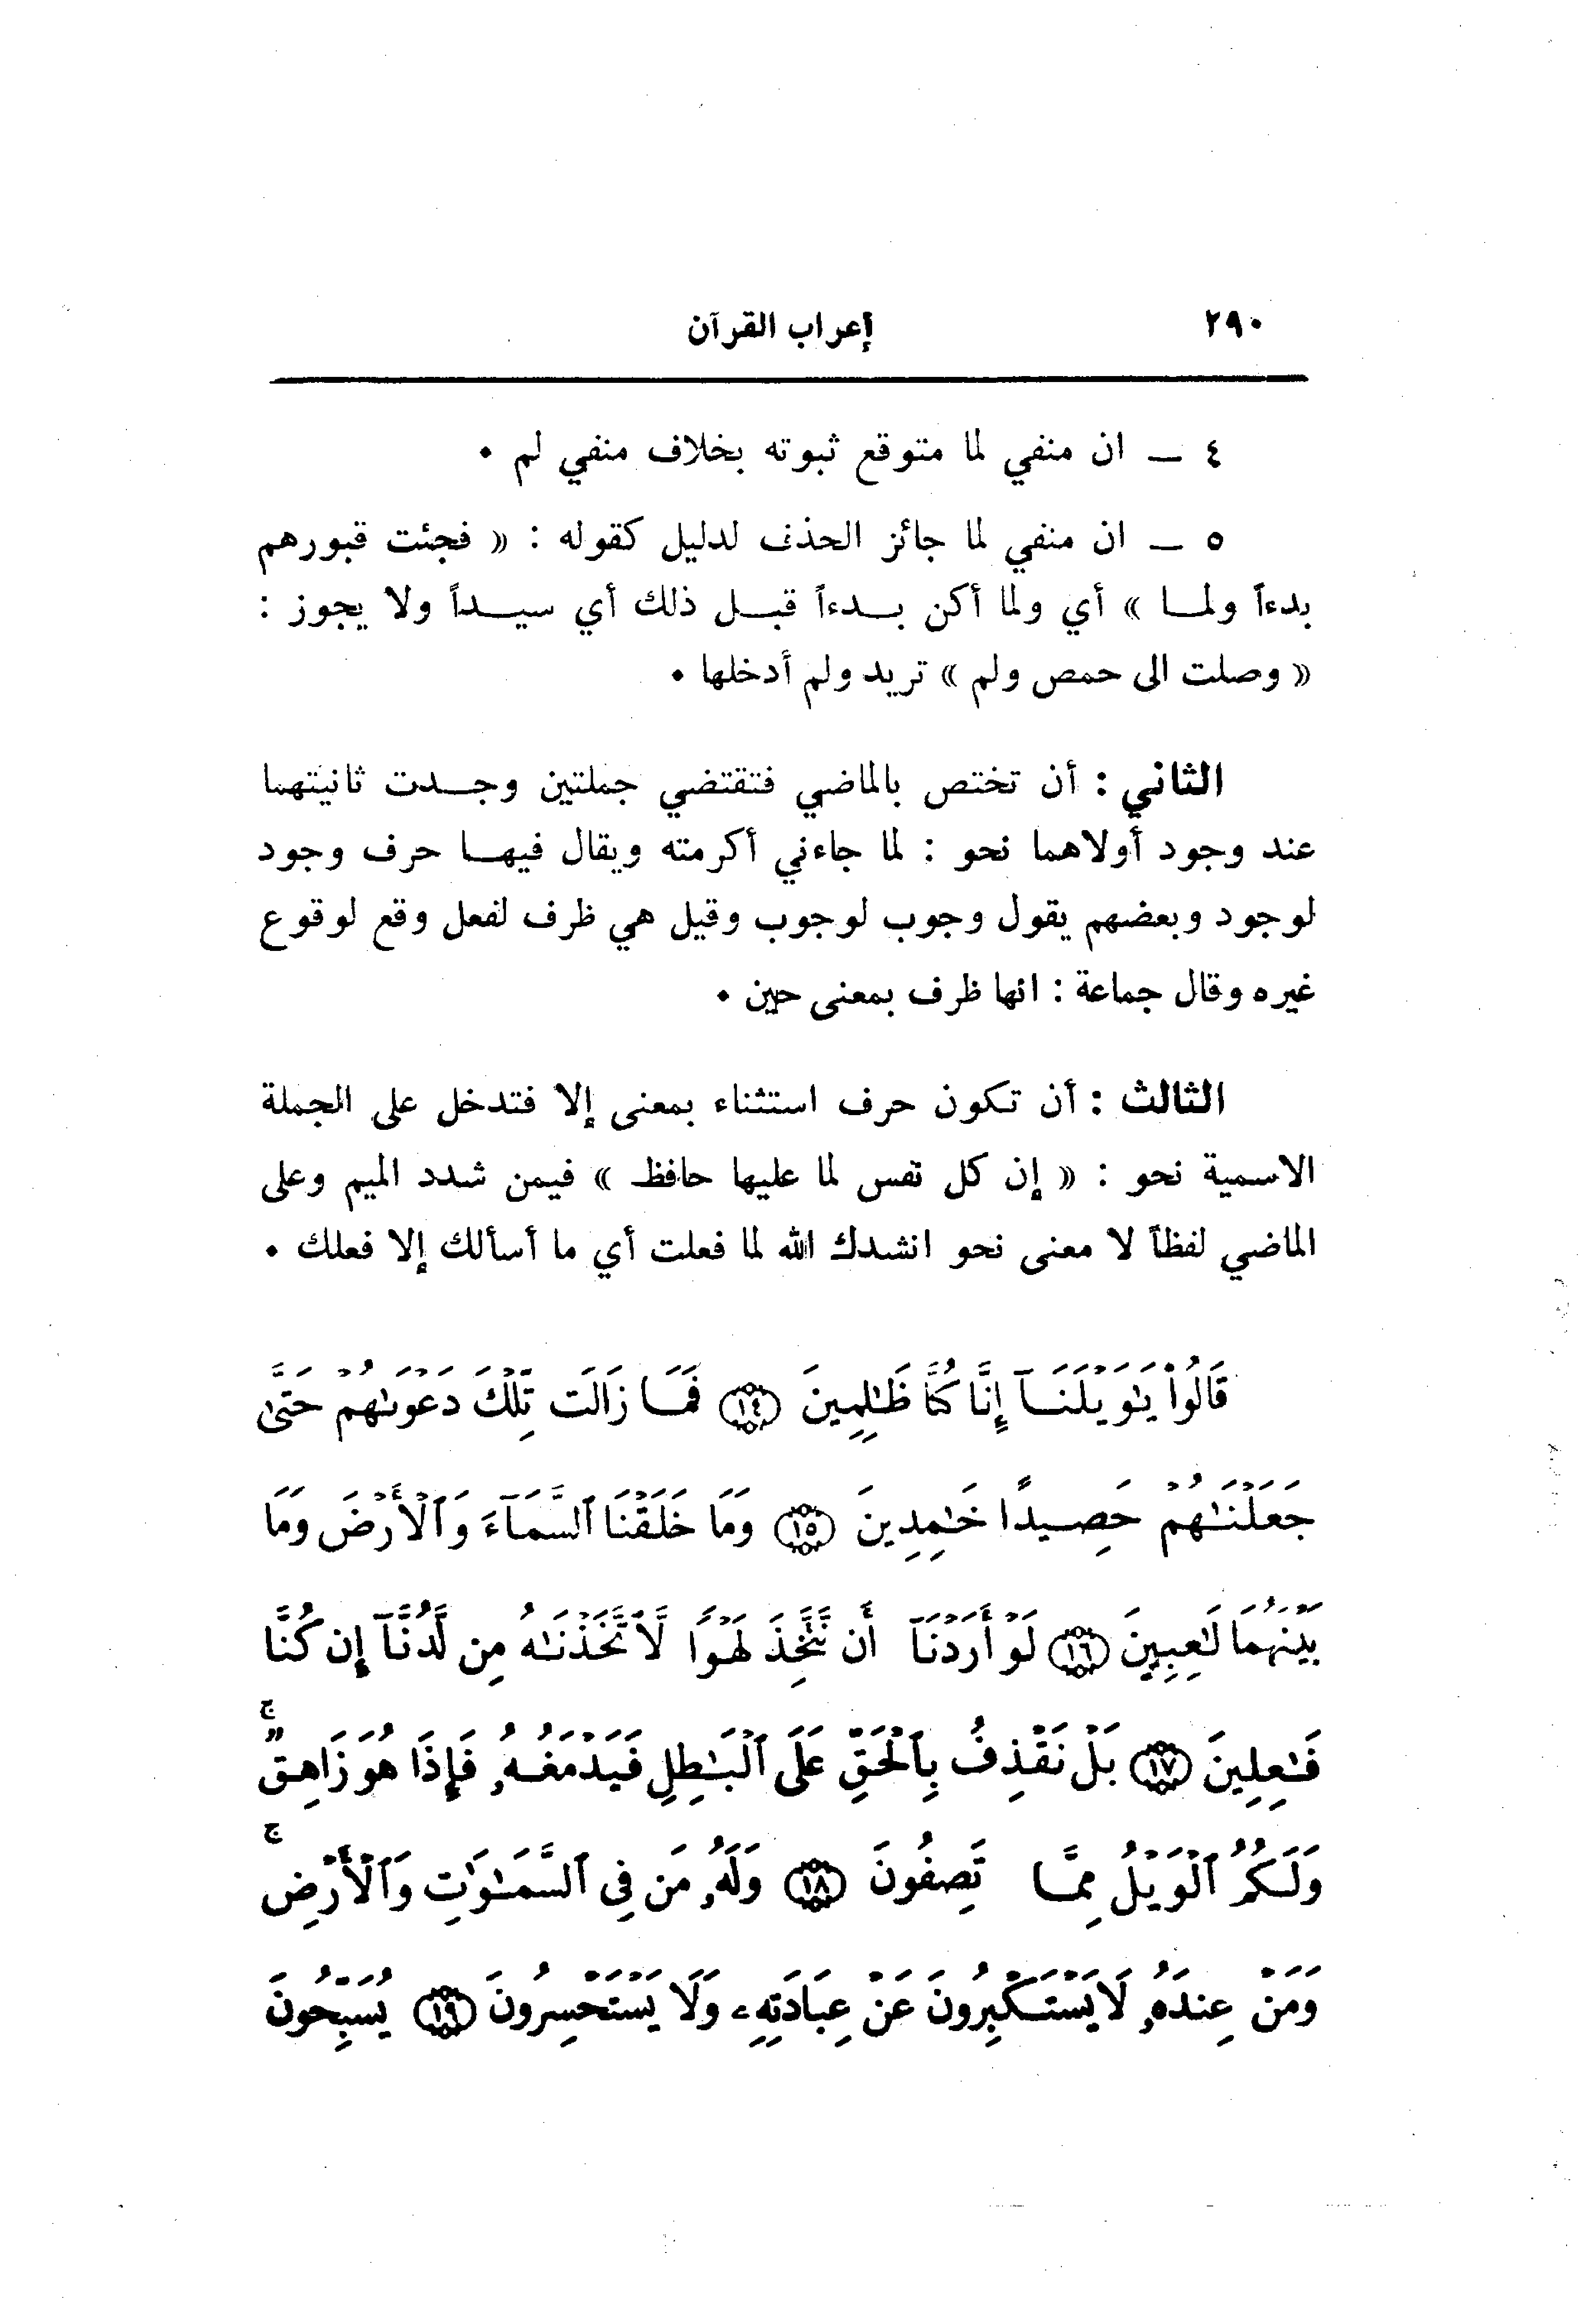 ٢٩٠
إعراب القرآن
٤ ــ ان منفي لما متوقع ثبوته بخلاف منفي لم .
٥ ــ ان منفي لما جائز الحذف لدليل كقوله : « فجئت قبورهم
بدءاً ولمــا » أي ولما أكن بــدءاً قبــل ذلك أي سيــداً ولا يجوز :
« وصلت الى حمص ولم » تريد ولم أدخلها .
الثاني : أن تختص بالماضي فتقتضي جملتين وجــدت ثانيتهما
عند وجود أولاهما نحو : لما جاءني أكرمته ويقال فيهــا حرف وجود
لوجود وبعضهم يقول وجوب لوجوب وقيل هي ظرف لفعل وقع لوقوع
غيره وقال جماعة : انها ظرف بمعنى حين .
الثالث : أن تكون حرف استثناء بمعنى إلا فتدخل على الجملة
الاسمية نحو : « إن كل نفس لما عليها حافظ » فيمن شدد الميم وعلى
الماضي لفظاً لا معنى نحو انشدك الله لما فعلت أي ما أسألك إلا فعلك .
قَالُوا۟ يَـٰوَيْلَنَآ إِنَّا كُنَّا ظَـٰلِمِينَ ۝١٤ فَمَا زَالَت تِّلْكَ دَعْوَىٰهُمْ حَتَّىٰ
جَعَلْنَـٰهُمْ حَصِيدًا خَـٰمِدِينَ ۝١٥ وَمَا خَلَقْنَا ٱلسَّمَآءَ وَٱلْأَرْضَ وَمَا
بَيْنَهُمَا لَـٰعِبِينَ ۝١٦ لَوْ أَرَدْنَآ أَن نَّتَّخِذَ لَهْوًا لَّٱتَّخَذْنَـٰهُ مِن لَّدُنَّآ إِن كُنَّا
فَـٰعِلِينَ ۝١٧ بَلْ نَقْذِفُ بِٱلْحَقِّ عَلَى ٱلْبَـٰطِلِ فَيَدْمَغُهُۥ فَإِذَا هُوَ زَاهِقٌ ۚ
وَلَكُمُ ٱلْوَيْلُ مِمَّا تَصِفُونَ ۝١٨ وَلَهُۥ مَن فِى ٱلسَّمَـٰوَٰتِ وَٱلْأَرْضِ ۚ
وَمَنْ عِندَهُۥ لَا يَسْتَكْبِرُونَ عَنْ عِبَادَتِهِۦ وَلَا يَسْتَحْسِرُونَ ۝١٩ يُسَبِّحُونَ